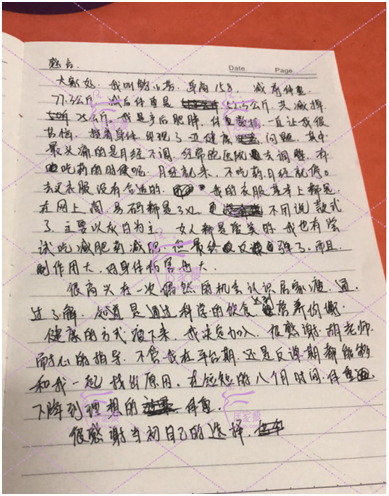 Date. Page.
感言.
大家好,我叫 身高158,减前体重
77.3公斤,减后体重是 51.3公斤,共减掉
26公斤,我是产后肥胖,体重超标一直让我很
苦恼,接着身体出现了亚健康 问题,其中
最头痛的是月经不调,经常吃医院 去调整,有
吃药的时候呢,月经就来,不吃药月经就停。
去买衣服没有合适的, 我的衣服基本上都是
在网上淘,号码都是3 , 不用说款式
了,主要以 为主,女人都是爱美的,我也有尝
试吃减肥药减肥,但最终 反弹了,而且
副作用大,对身体伤害也大。
很高兴在一次偶然的机会认识 瘦,通
过了解,知道是通过科学的饮食 营养均衡
健康的方式瘦下来,我决定加入,很感谢胡老师
耐心的指导,不管我在平台期,还是反误期都能够
和我一起找出原因,在短短的八个月时间,体重
下降到理想的 体重
很感谢当初自己的选择